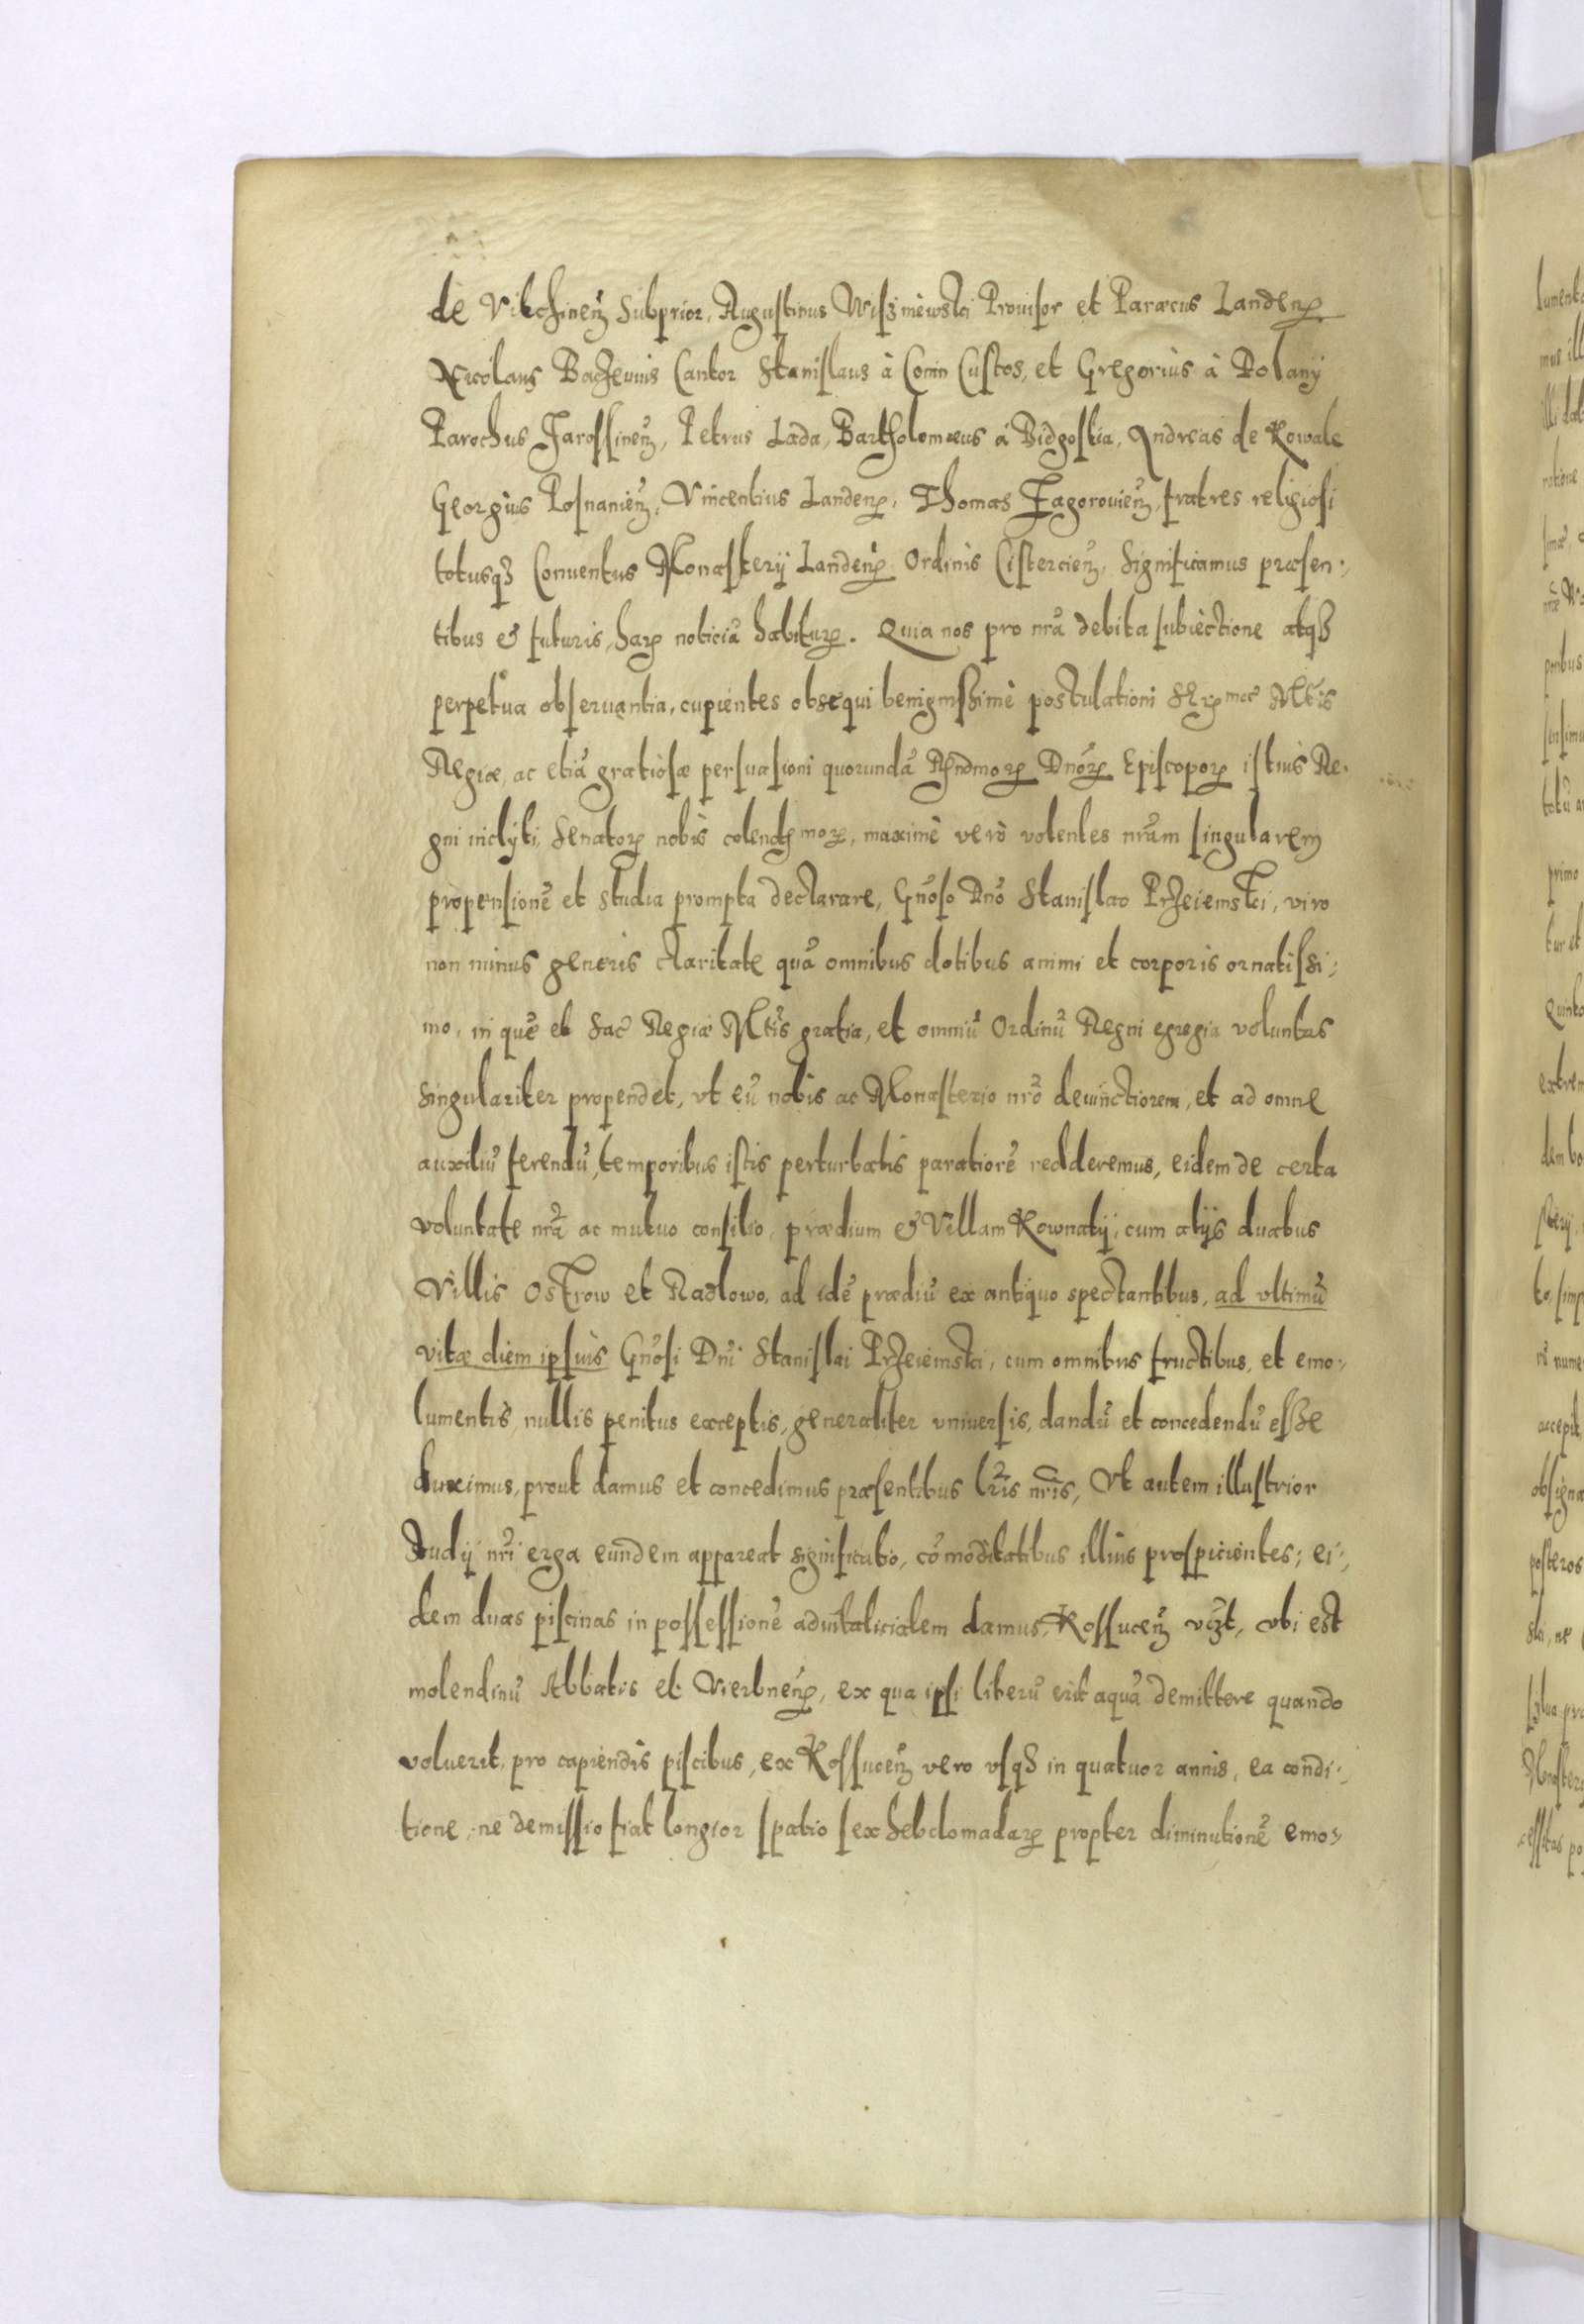 de Vilchinenz Subprior, Augustinus Wiszniewski Prouisor et Paræcus Landenꝝ
Nicolaus Baczeuius Cantor Stanislaus à Conin Custos, et Gregorius à Polany
Parochus Jarossinenz, Petrus Lada, Bartholomæus à Bidgostia, Andreas de Kowale
Georgius Posnanienz, Vincentius Landenꝝ, Thomas Zagorouienz, fratres religiosi
totusqꝫ Conuentus Monasterij Landenꝝ Ordinis Cistercienz, Significamus præsen:,
tibus & futuris, harꝝ noticiã habiturꝝ. Quia nos pro nr̃a debita subiectione atqꝫ
perpetua obseruantia, cupientes obsequi benignissimè postulationi Serꝝmæ Mt̃is
Regiæ, ac etiã gratiosæ persuasioni quorundã Rñdmorꝝ Dñorꝝ Episcoporꝝ istius Re.
gni inclyti, Senatorꝝ nobis colendmorꝝ, maximè verò volentes nr̃am singularem
propensionẽ et studia prompta declarare, Gñoso Dño Stanislao Przeiemski, viro
non minus generis claritate quã omnibus dotibus animi et corporis ornatissi:,
mo, in quẽ et Sac̃ Regiæ Mt̃is gratia, et omniũ Ordinũ Regni egregia voluntas
singulariter propendet, vt eũ nobis ac Monasterio nr̃o deuinctiorem, et ad omne
auxiliũ ferendũ, temporibus istis perturbatis paratiorẽ redderemus, eidem de certa
voluntate nr̃a ac mutuo consilio, prædium & Villam Kownaty, cum alijs duabus
Villis Ostrow et Radlowo, ad idẽ prædiũ ex antiquo spectantibus, ad vltimũ
vitæ diem ipsius Gñosi Dñi Stanislai Przeiemski, cum omnibus fructibus, et emo:,
lumentis nullis penitus exceptis, generaliter vniuersis, dandũ et concedendũ esse
duximus, prout damus et concedimus præsentibus lr̃is nr̃is, Vt autem illustrior
Studij nr̃i erga eundem appareat significatio, cõmoditatibus illius prospicientes; ei:,
dem duas piscinas in possessionẽ aduitalicialem damus, Kossucenz vczt, vbi est
molendinũ Abbatis et Vierbnenꝝ, ex qua ipsi liberũ erit aquã demittere quando
voluerit, pro capiendis piscibus, ex Kossucenz vero vsqꝫ in quatuor annis, ea condi:,
tione, ne demissio fiat longior spatio sex hebdomadarꝝ propter diminutionẽ emo:,